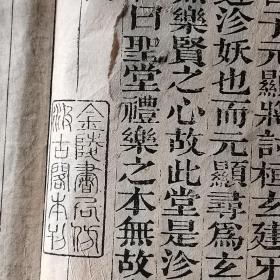 子元顯將討桓玄建牙
沴妖也而元顯尋為玄
無樂賢之心故此堂是沴
曰聖堂禮樂之本無故
金陵書局仿
汲古閣本刊